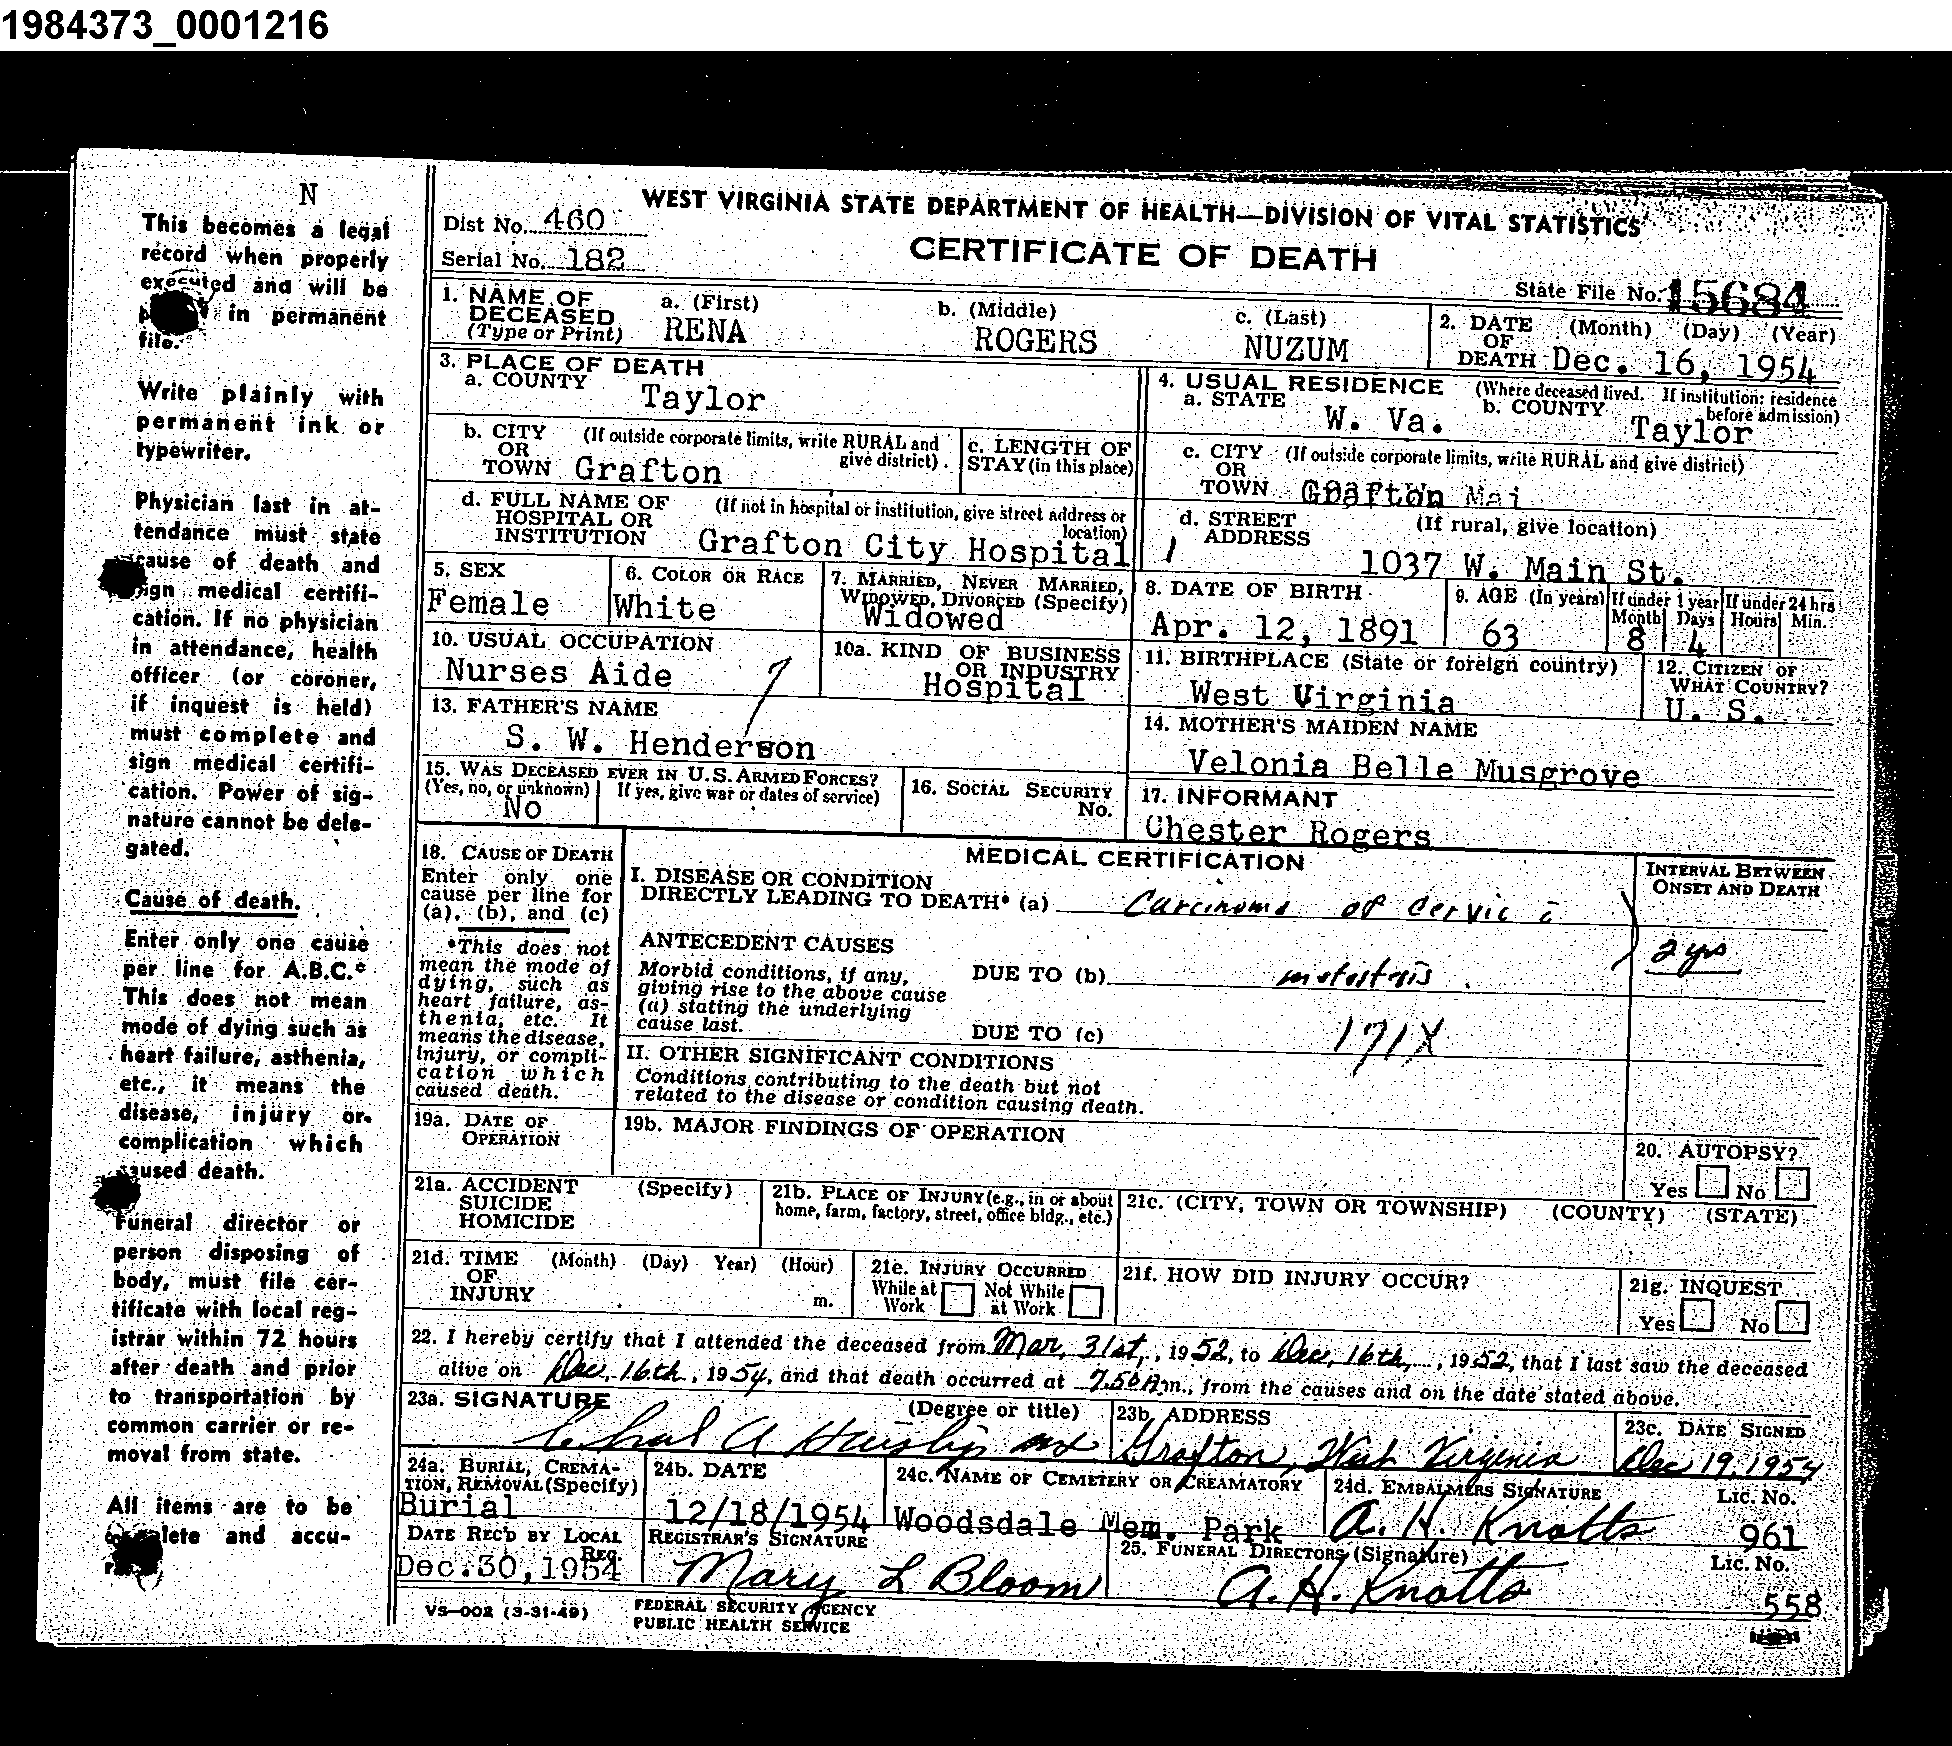 1984373_0001216
N
This becomes a legal
record when properly
executed and will be
in permanent
file.
Write plainly with
permanent ink or
typewriter.
Physician last in at-
tendance must state
cause of death and
sign medical certifi-
cation. If no physician
in attendance, health
officer (or coroner,
if inquest is held)
must complete and
sign medical certifi-
cation. Power of sig-
nature cannot be dele-
gated.
Cause of death.
Enter only one cause
per line for A.B.C.*
This does not mean
mode of dying such as
heart failure, asthenia,
etc., it means the
disease, injury or
complication which
caused death.
Funeral director or
person disposing of
body, must file cer-
tificate with local reg-
istrar within 72 hours
after death and prior
to transportation by
common carrier or re-
moval from state.
All items are to be
complete and accu-
WEST VIRGINIA STATE DEPARTMENT OF HEALTH—DIVISION OF VITAL STATISTICS
Dist No. 460
CERTIFICATE OF DEATH
Serial No. 182
State File No. 15684
1. NAME OF DECEASED (Type or Print) a. (First) RENA b. (Middle) ROGERS c. (Last) NUZUM
2. DATE OF DEATH (Month) (Day) (Year) Dec. 16, 1954
3. PLACE OF DEATH
a. COUNTY Taylor
4. USUAL RESIDENCE (Where deceased lived. If institution: residence before admission)
a. STATE W. Va. b. COUNTY Taylor
b. CITY OR TOWN (If outside corporate limits, write RURAL and give district). Grafton
c. LENGTH OF STAY (in this place)
c. CITY OR TOWN (If outside corporate limits, write RURAL and give district) Grafton
d. FULL NAME OF HOSPITAL OR INSTITUTION (If not in hospital or institution, give street address or location) Grafton City Hospital
d. STREET ADDRESS (If rural, give location) 1037 W. Main St.
5. SEX Female
6. COLOR OR RACE White
7. MARRIED, NEVER MARRIED, WIDOWED, DIVORCED (Specify) Widowed
8. DATE OF BIRTH Apr. 12, 1891
9. AGE (In years) 63 If under 1 year Month 8 Days 4 If under 24 hrs Hours Min.
10. USUAL OCCUPATION Nurses Aide
10a. KIND OF BUSINESS OR INDUSTRY Hospital
11. BIRTHPLACE (State or foreign country) West Virginia
12. CITIZEN OF WHAT COUNTRY? U. S.
13. FATHER'S NAME S. W. Henderson
14. MOTHER'S MAIDEN NAME Velonia Belle Musgrove
15. WAS DECEASED EVER IN U.S. ARMED FORCES? (Yes, no, or unknown) No If yes, give war or dates of service)
16. SOCIAL SECURITY No.
17. INFORMANT Chester Rogers
18. CAUSE OF DEATH
Enter only one
cause per line for
(a), (b), and (c)
*This does not
mean the mode of
dying, such as
heart failure, as-
thenia, etc. It
means the disease,
injury, or compli-
cation which
caused death.
MEDICAL CERTIFICATION
INTERVAL BETWEEN ONSET AND DEATH
I. DISEASE OR CONDITION
DIRECTLY LEADING TO DEATH* (a) Carcinoma of Cervic c̄
2 yrs
ANTECEDENT CAUSES
Morbid conditions, if any,
giving rise to the above cause
(a) stating the underlying
cause last.
DUE TO (b) metastasis
DUE TO (c) 171X
II. OTHER SIGNIFICANT CONDITIONS
Conditions contributing to the death but not
related to the disease or condition causing death.
19a. DATE OF OPERATION
19b. MAJOR FINDINGS OF OPERATION
20. AUTOPSY?
Yes No
21a. ACCIDENT SUICIDE HOMICIDE (Specify)
21b. PLACE OF INJURY (e.g., in or about home, farm, factory, street, office bldg., etc.)
21c. (CITY, TOWN OR TOWNSHIP) (COUNTY) (STATE)
21d. TIME OF INJURY (Month) (Day) Year) (Hour) m.
21e. INJURY OCCURRED While at Work Not While at Work
21f. HOW DID INJURY OCCUR?
21g. INQUEST
Yes No
22. I hereby certify that I attended the deceased from Mar. 31st, 1952, to Dec. 16th, 1952, that I last saw the deceased
alive on Dec. 16th, 1954, and that death occurred at 7.50 A m., from the causes and on the date stated above.
23a. SIGNATURE (Degree or title) A
23b. ADDRESS Grafton, West Virginia
23c. DATE SIGNED Dec 19, 1954
24a. BURIAL, CREMATION, REMOVAL (Specify) Burial
24b. DATE 12/18/1954
24c. NAME OF CEMETERY OR CREAMATORY Woodsdale Mem. Park
24d. EMBALMERS SIGNATURE A. H. Knotts Lic. No. 961
DATE REC'D BY LOCAL REG. Dec. 30, 1954
REGISTRAR'S SIGNATURE Mary L Bloom
25. FUNERAL DIRECTORS (Signature) A. H. Knotts Lic. No. 558
VS—002 (3-31-49)
FEDERAL SECURITY AGENCY
PUBLIC HEALTH SERVICE